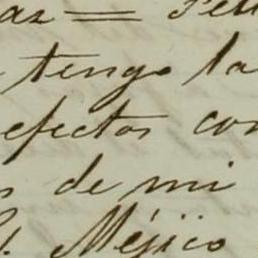 tengo la
efectos con
de mi
Méjico